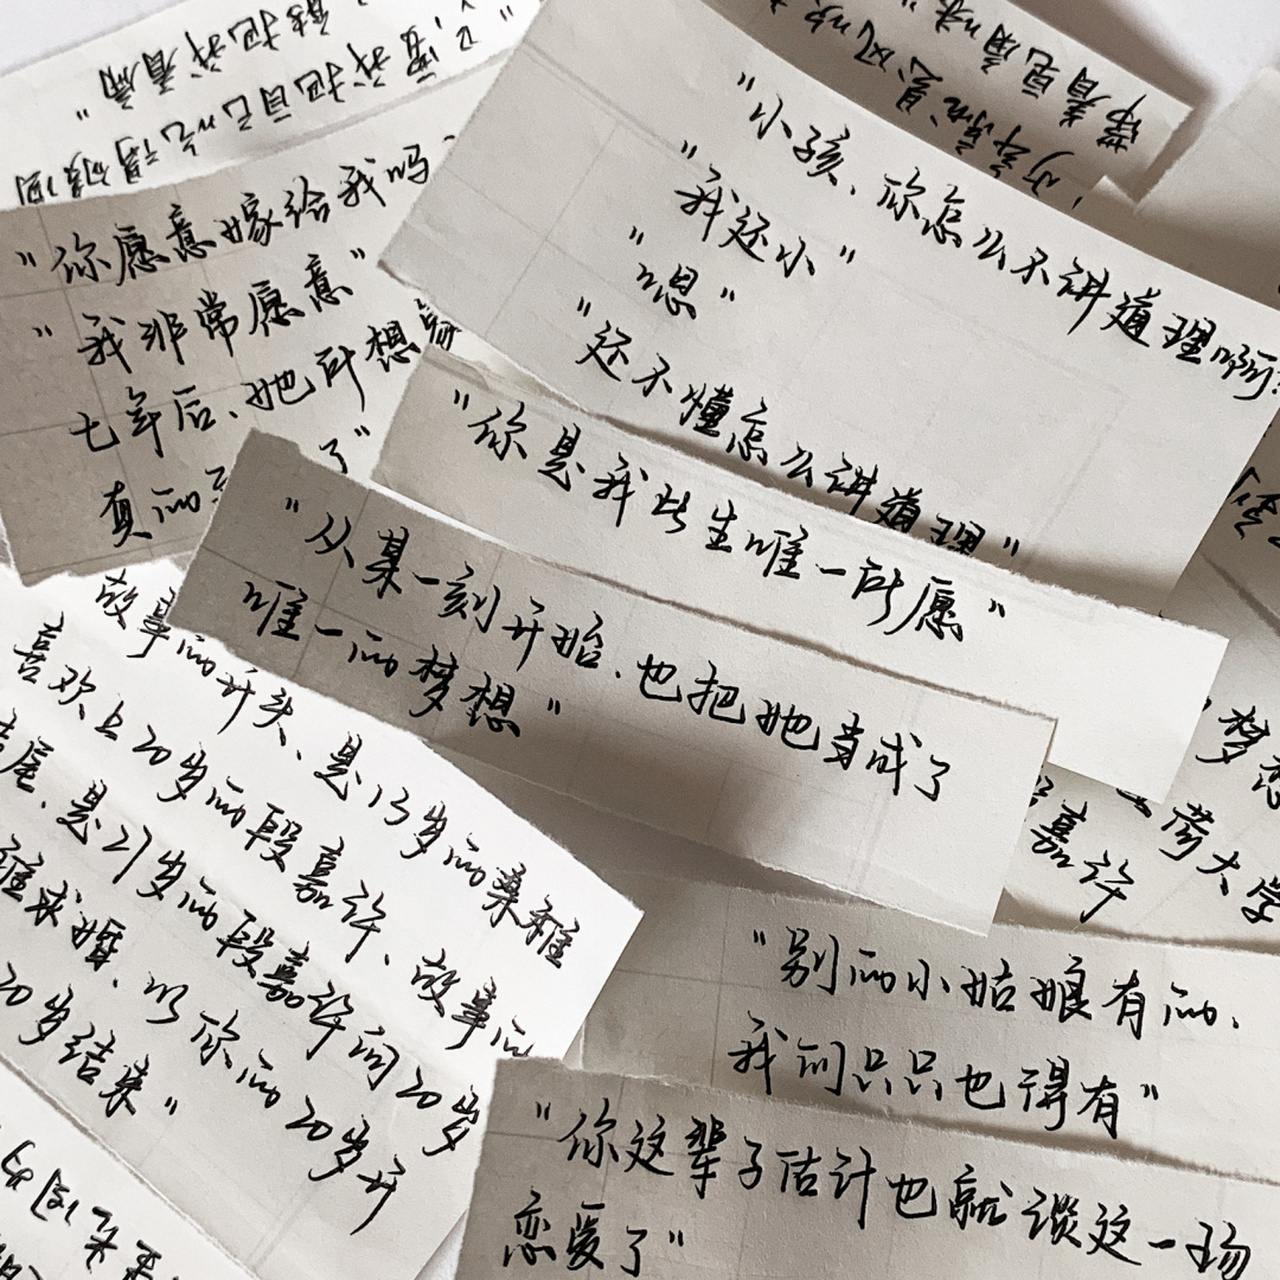 能把我看高"
要我把自己
"你愿意嫁给我吗
"我非常愿意"
七年后、她所想
真的
了"
"小孩、你怎么不讲道理啊
"我还小"
"嗯"
"还不懂怎么讲道理"
"你是我此生唯一所愿"
"从某一刻开始、也把她当成了
唯一的梦想"
故事的开头、是13岁的桑稚
喜欢上20岁的段嘉许、故事的
结尾、是27岁的段嘉许向20岁
稚求婚、以你的20岁开
20岁结束"
梦想
大学
嘉许
"别的小姑娘有的、
我们只只也得有"
"你这辈子估计也就谈这一场
恋爱了"